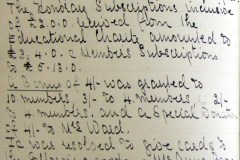 The Honorary Subscriptions inclusive
of £2.0.0. received from the
Educational Charity amounted to
£3.4.0. & Members Subscriptions
to £5.13.0.
A Bonus of 4/- was granted to
10 members, 3/- to 4 members, 2/-
to 4 members, and a Special Donation
of 4/- to Mrs Ward.
It was resolved to give cards to